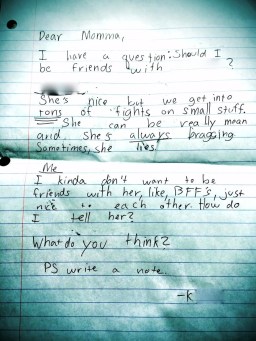 Dear Momma,
I have a question: Should I
be friends with ?
She's nice but we get into
tons of fights on small stuff.
She can be really mean
and she's always bragging
Sometimes, she lies
Me
I kinda don't want to be
friends with her, like, BFF's, just
nice to each other. How do
I tell her?
What do you think?
PS write a note
-K